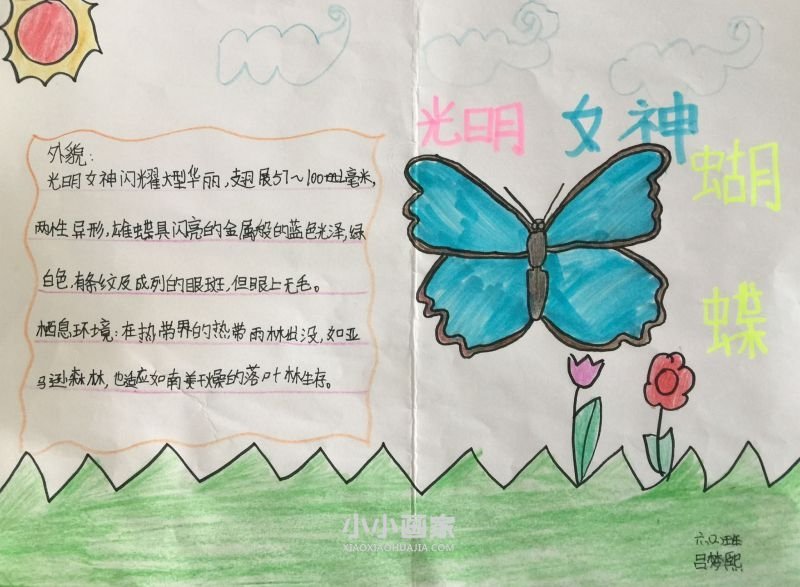 光明 女神
蝴
蝶
外貌:
光明女神闪耀大型华丽,翅展57~100mm毫米,
两性异形,雄蝶具闪亮的金属般的蓝色光泽,绿
白色,有条纹及成列的眼斑,但眼上无毛。
栖息环境:在热带界的热带雨林出没,如亚
马逊森林,也适应如南美干燥的落叶林生存。
吕梦熙
小小画家
XIAOXIAOHUAJIA.COM